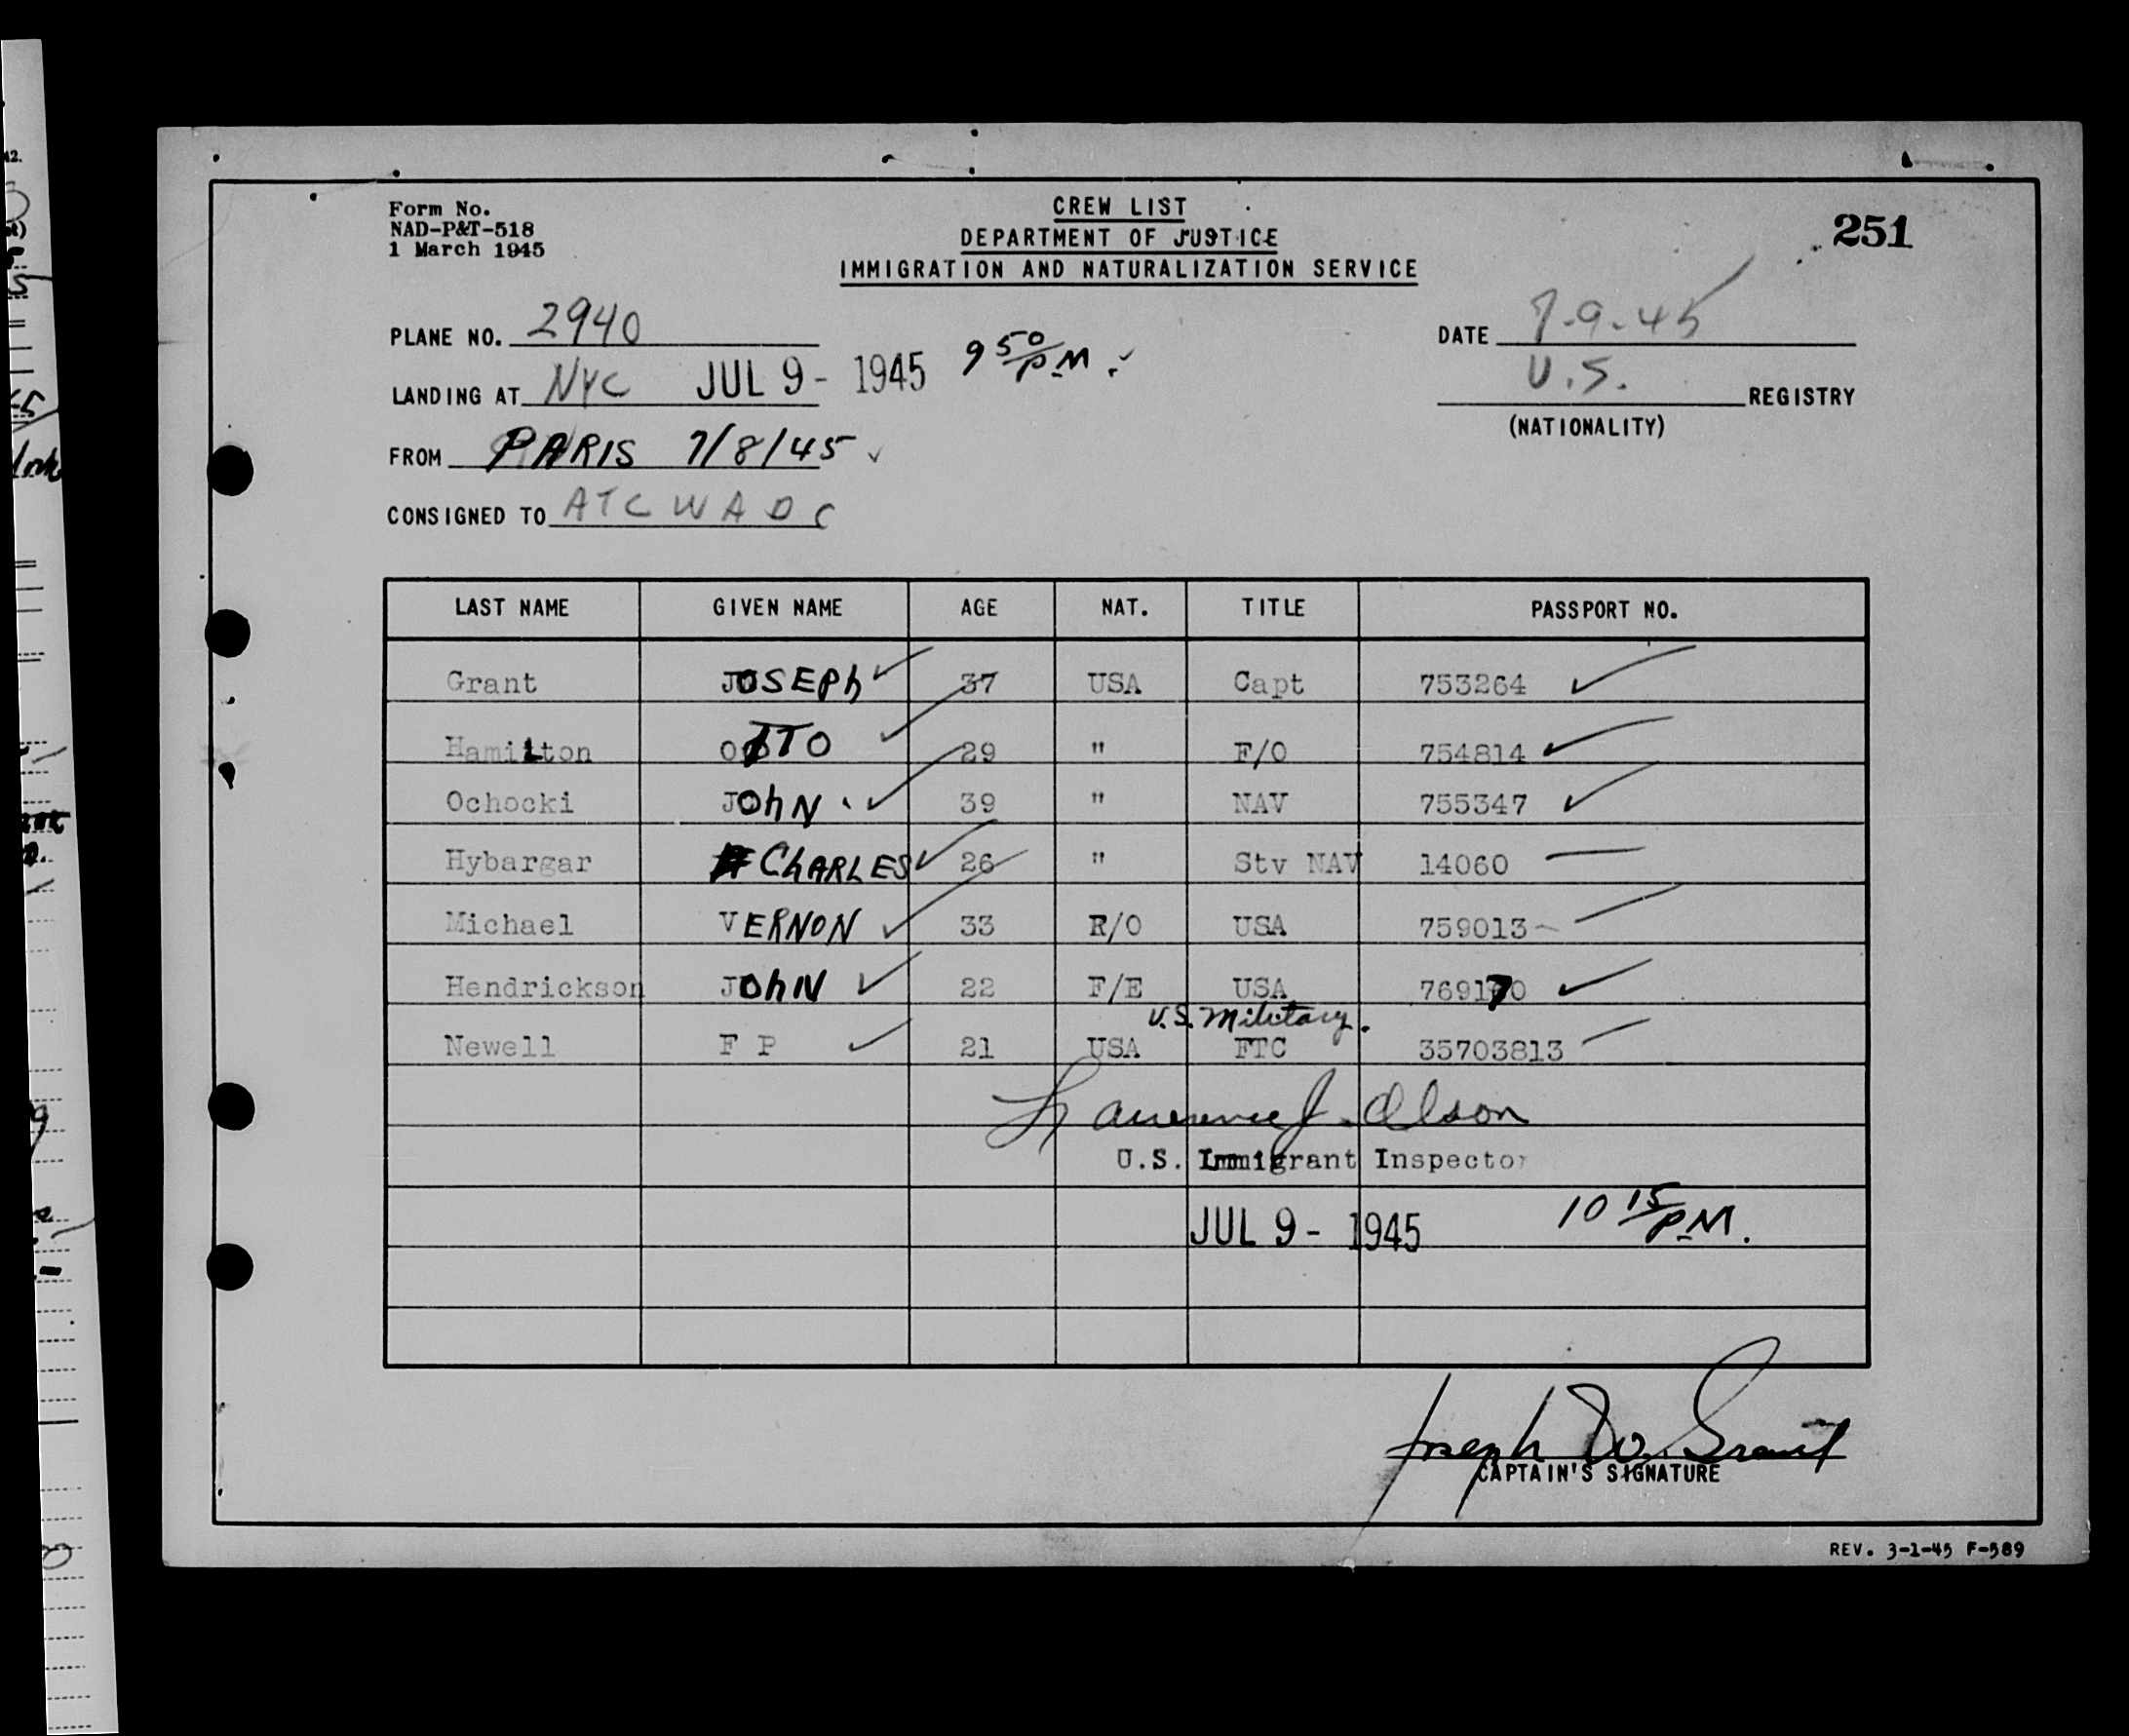 Form No.
NAD-P&T-518
1 March 1945
CREW LIST
DEPARTMENT OF JUSTICE
IMMIGRATION AND NATURALIZATION SERVICE
251
PLANE NO. 2940
DATE 7-9-45
LANDING AT NYC JUL 9 - 1945 9 50/PM.
U.S. REGISTRY
(NATIONALITY)
FROM PARIS 7/8/45
CONSIGNED TO ATC WADC
LAST NAME GIVEN NAME AGE NAT. TITLE PASSPORT NO.
Grant JOSEPh 37 USA Capt 753264
Hamilton OTTO 29 " F/O 754814
Ochocki JOhN 39 " NAV 755347
Hybargar ChARLES 26 " Stv NAV 14060
Michael VERNON 33 R/O USA 759013
Hendrickson JOhN 22 F/E USA 769170
U.S. Military.
Newell F P 21 USA FTC 35703813
Lawrence J. Olson
U.S. Immigrant Inspector
JUL 9 - 1945 10 15/PM.
Joseph W. Grant
CAPTAIN'S SIGNATURE
REV. 3-1-45 F-589